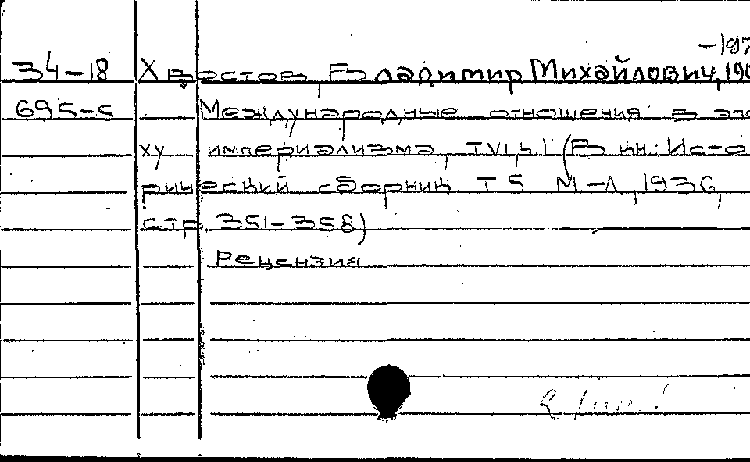 -197
34-18 Хвостов, Владимир Михайлович, 190
695-с Международные отношения в эпо
ху империализма, T.VI, ч.I (В кн: Исто
рический сборник T 5 М-Л, 1936,
стр. 351-358)
Рецензия